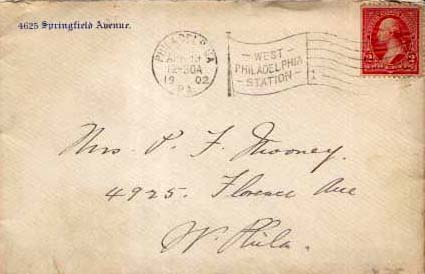 4625 Springfield Avenue.
PHILADELPHIA
12-30A
19 02
PA.
WEST
PHILADELPHIA
STATION
2 2
Mrs. P. F. Mooney.
4925. Florence Ave
W. Phila.